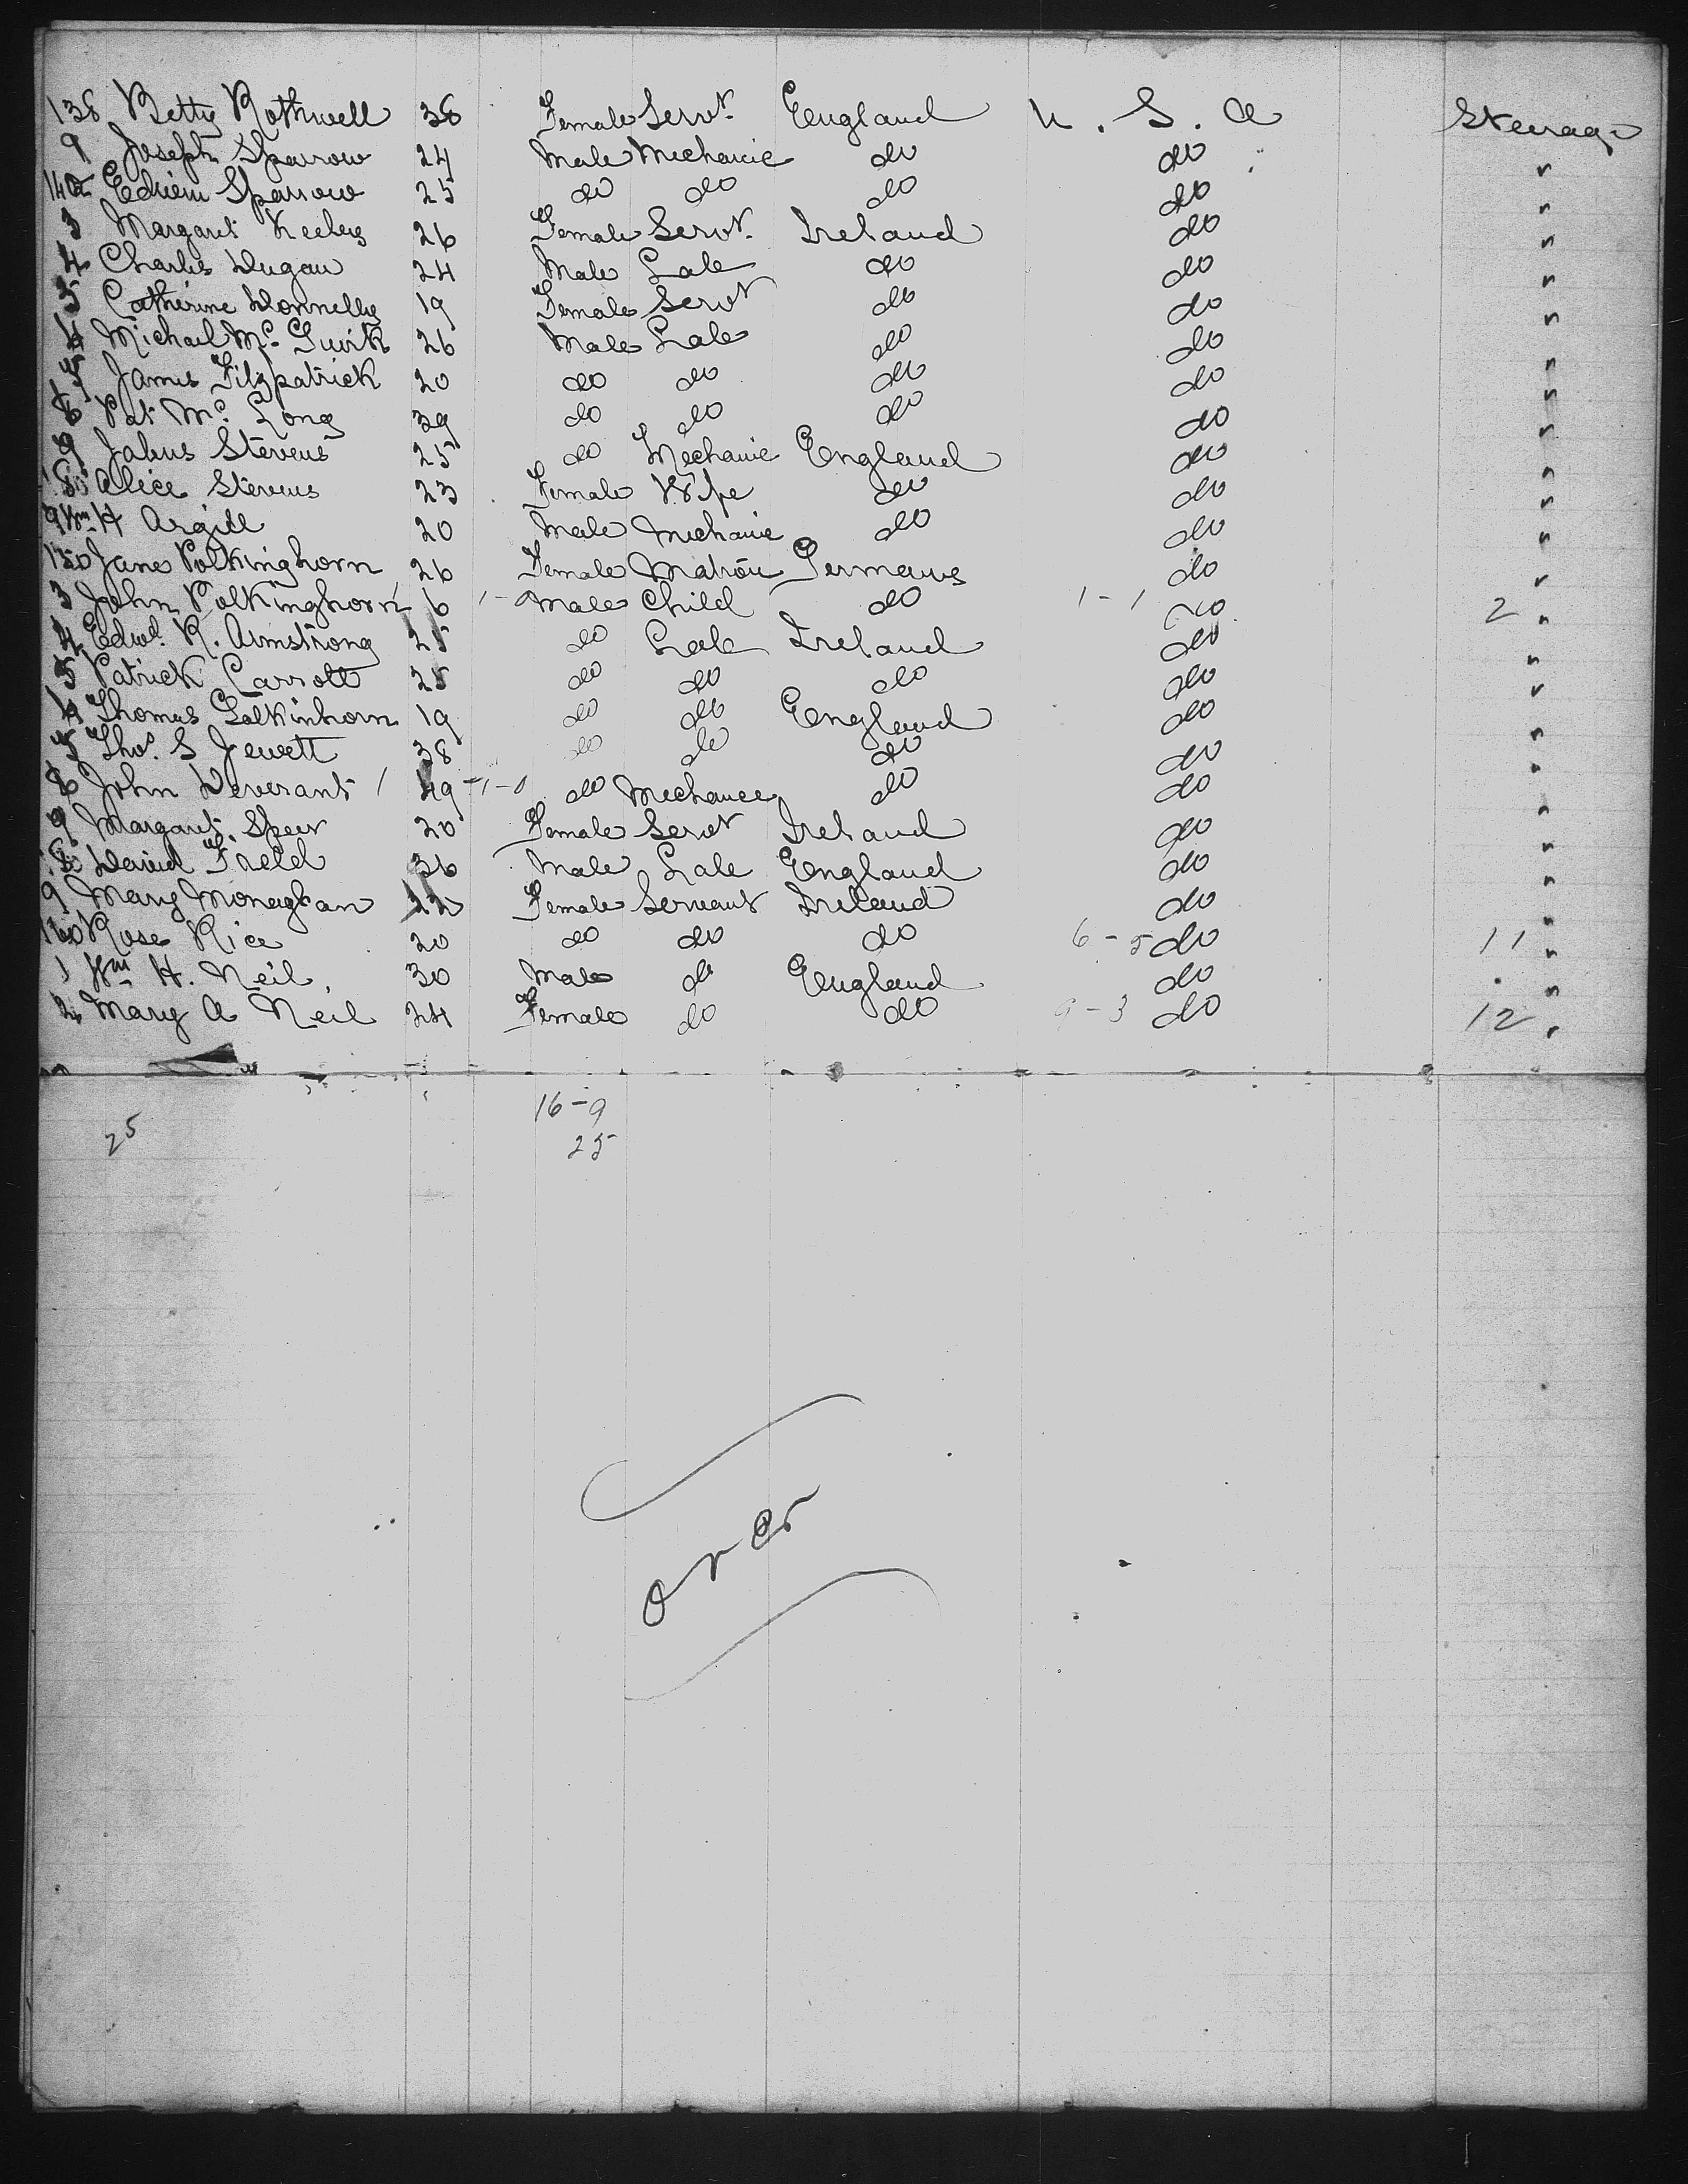 138 Betty Rothwell 38 Female Servt. England U. S. A Steerage
9 Joseph Sparrow 24 Male Mechanic do do "
140 Edwin Sparrow 25 do do do do "
3 Margaret 26 Female Servt. Ireland do "
4 Charles Dugan 24 Male Lab do do "
5 Catherine Donnelly 19 Female Servt do do "
Michael Mc. Guirk 26 Male Lab do do "
James Fitzpatrick 20 do do do do "
Pat Mc. Long 39 do do do do "
9 Stevens 25 do Mechanic England do "
Alice Stevens 23 Female Wife do do "
9 Wm H Argill 20 Male Mechanic do do "
150 Jane Polkinghorn 26 Female Matron Germany do "
3 John Polkinghorn 6 1 - Male Child do 1 - 1 do 2 "
4 Edwd. R. Armstrong 25 do Lab Ireland do "
5 Patrick Carroll 25 do do do do "
Thomas 19 do do England do "
Thos. S Jewett 38 do do do do "
John Deverant 1 49 - 1 - 0 do Mechanic do do "
9 Margaret Speer 20 Female Servt Ireland do "
David Field 36 Male Lab England do "
9 Mary Monaghan 22 Female Servant Ireland do "
160 Rose Rice 20 do do do 6 - 5 do 11 "
1 Wm H. Neil 30 Male do England do "
2 Mary A Neil 24 Female do do 9 - 3 do 12 "
25 16 - 9
25
over